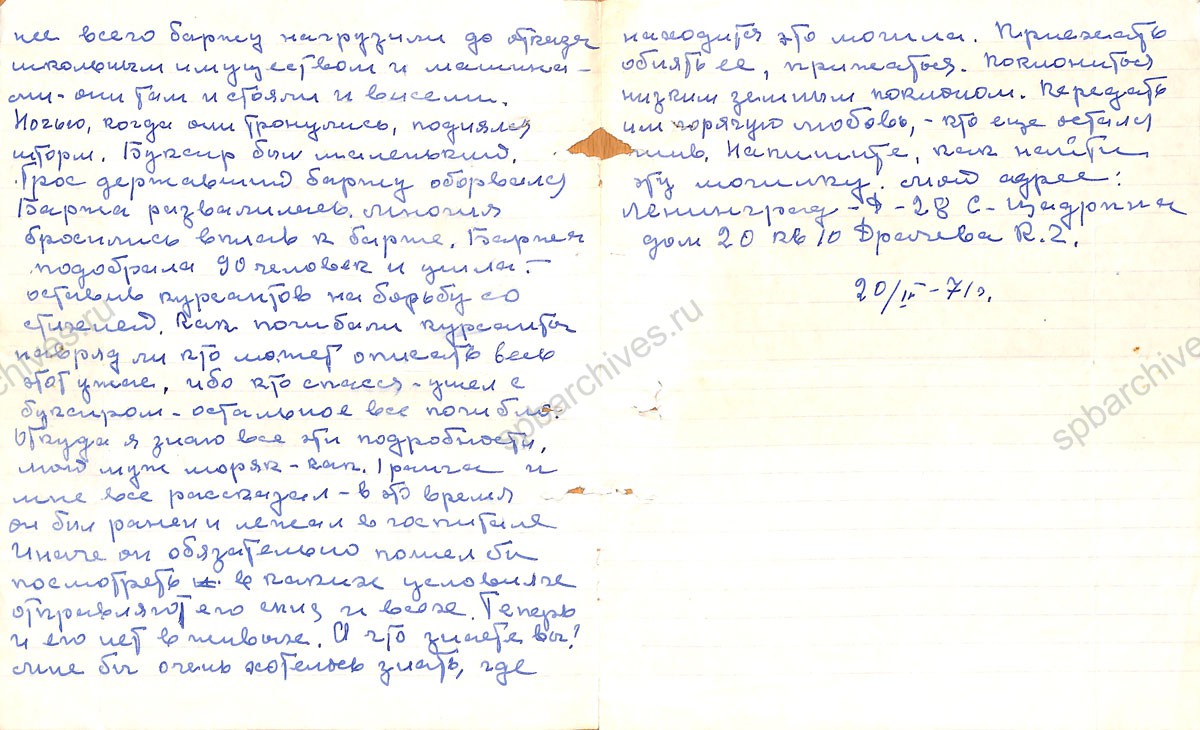 нее всего баржу нагрузили до отказа
школьным имуществом и машина-
ми - они там и стояли и висели.
Ночью, когда они тронулись, поднялся
шторм. Буксир был маленький.
Трос державший баржу оборвался
Баржа развалилась. Многия
бросились вплавь к барже. Баржа
подобрала 90 человек и ушла -
оставив курсантов на борьбу со
стихией. Как погибали курсанты
наврядли кто может описать весь
этот ужас, ибо кто спасся - ушел с
буксиром - остальное все погибло.
Откуда я знаю все эти подробности,
мой муж моряк - кап. I ранга и
мне все рассказал - в это время
он был ранен и лежал в госпитале
Иначе он обязательно пошел бы
посмотреть в каких условиях
отправляют его сына и всех. Теперь
и его нет в живых. А что знаете вы?
Мне бы очень хотелось знать, где
находится это могила. Приехать
обнять ее, прижаться. Поклониться
низким земным поклоном. Передать
им горячую любовь, - кто еще остался
жив. Напишите, как найти
эту могилку. Мой адрес:
Ленинград - Д - 28 С-Щедрина
дом 20 кв 10 Драчева К.Г.
20/III - 71 г.
spbarchives.ru
spbarchives.ru
spbarchives.ru